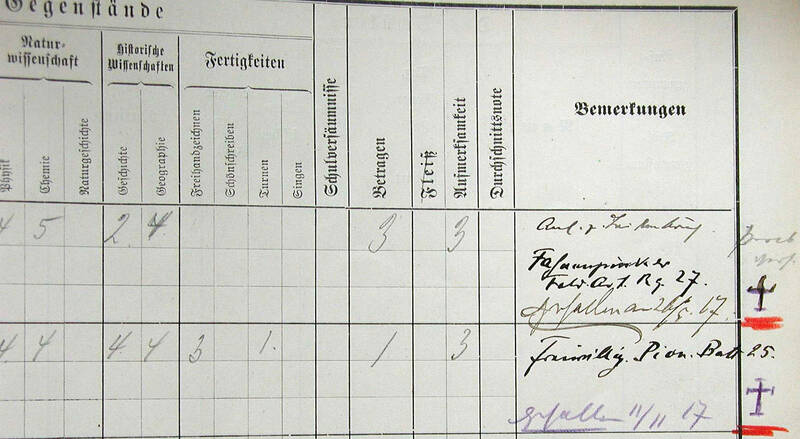 Gegenstände
Natur-
wissenschaft
Historische
Wissenschaften
Fertigkeiten
Physik
Chemie
Naturgeschichte
Geschichte
Geographie
Freihandzeichnen
Schönschreiben
Turnen
Singen
Schulversäumnisse
Betragen
Fleiß
Aufmerksamkeit
Durchschnittsnote
Bemerkungen
4 5 2 4 3 3
Feld. Art. Rg. 27.
Gefallen am 17.
4 4 4 4 3 1. 1 3 Freiwillig. Pion. Batt 25.
Gefallen 11/11 17